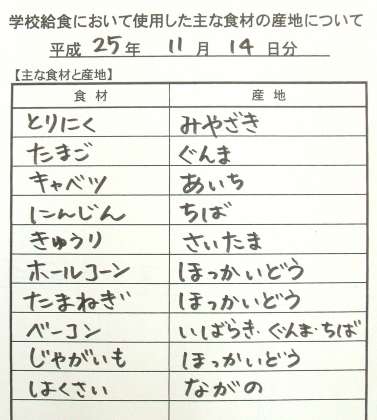 学校給食において使用した主な食材の産地について
平成 25 年 11 月 14 日分
【主な食材と産地】
食材 産地
とりにく みやざき
たまご ぐんま
キャベツ あいち
にんじん ちば
きゅうり さいたま
ホールコーン ほっかいどう
たまねぎ ほっかいどう
ベーコン いばらき・ぐんま・ちば
じゃがいも ほっかいどう
はくさい ながの